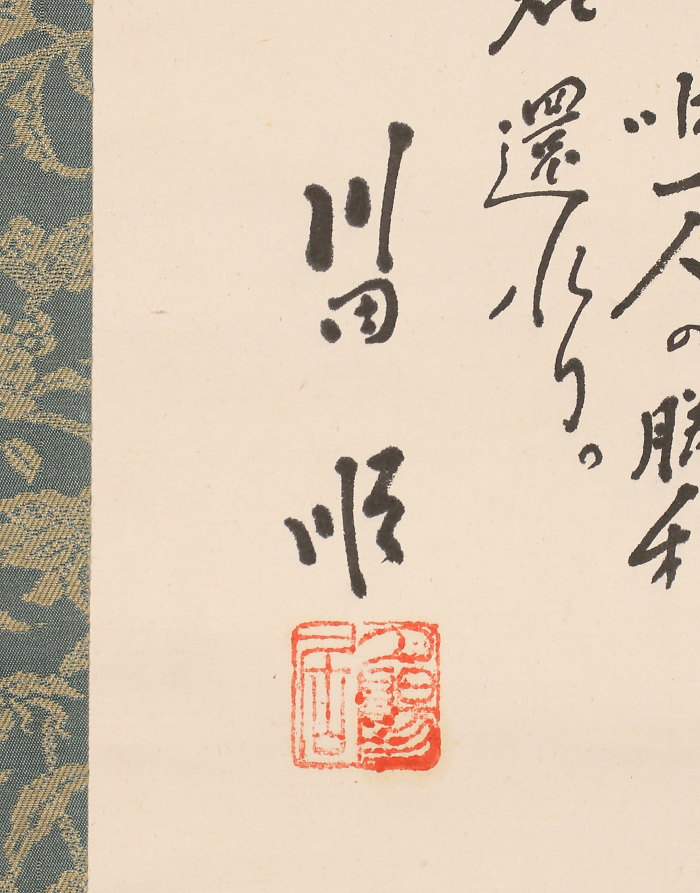 唯一人の勝利
還れり。
川田
順